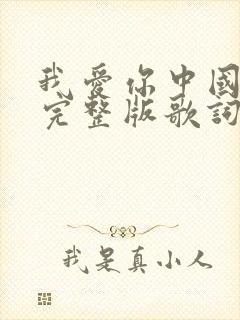 我爱你中国
完整版歌词
我是真小人